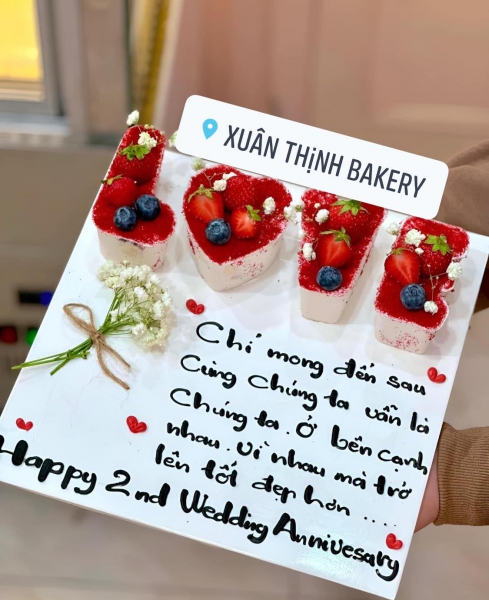 XUÂN THỊNH BAKERY
LOVE
Chỉ mong đến sau
Cùng chúng ta vẫn là
Chúng ta. Ở bên cạnh
nhau. vì nhau mà trở
lên tốt đẹp hơn ....
Happy 2nd Wedding Annivesary